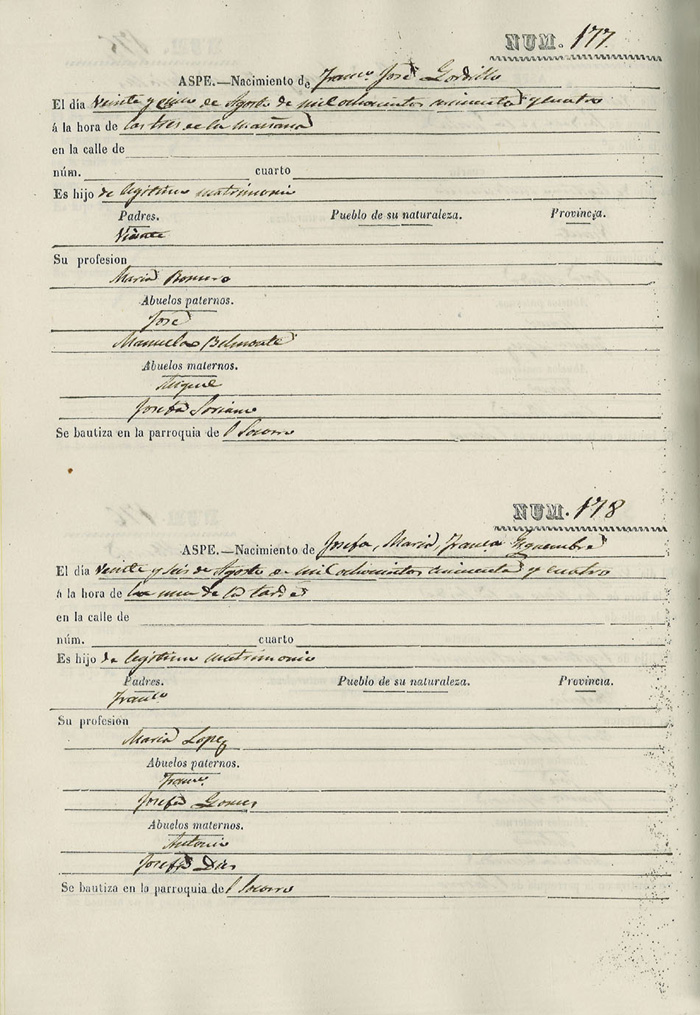 NUM. 177.
ASPE.—Nacimiento de Franco José Gordillo
El dia veinte y cinco de Agosto de mil ochocientos cincuenta y cuatro
á la hora de las tres de la mañana
en la calle de
núm. cuarto
Es hijo de legitimo matrimonio
Padres. Pueblo de su naturaleza. Provincia.
Vicente
Su profesion
Maria Romero
Abuelos paternos.
José
Manuela Belmonte
Abuelos maternos.
Miguel
Josefa Soriano
Se bautiza en la parroquia de l Socorro
NUM. 178
ASPE.—Nacimiento de Josefa, Maria, Franca
El dia veinte y seis de Agosto de mil ochocientos cincuenta y cuatro
á la hora de la una de la tarde
en la calle de
núm. cuarto
Es hijo de legitimo matrimonio
Padres. Pueblo de su naturaleza. Provincia.
Franco
Su profesion
Maria Lopez
Abuelos paternos.
Franco
Josefa Gomez
Abuelos maternos.
Antonio
Josefa Dies
Se bautiza en la parroquia de l Socorro